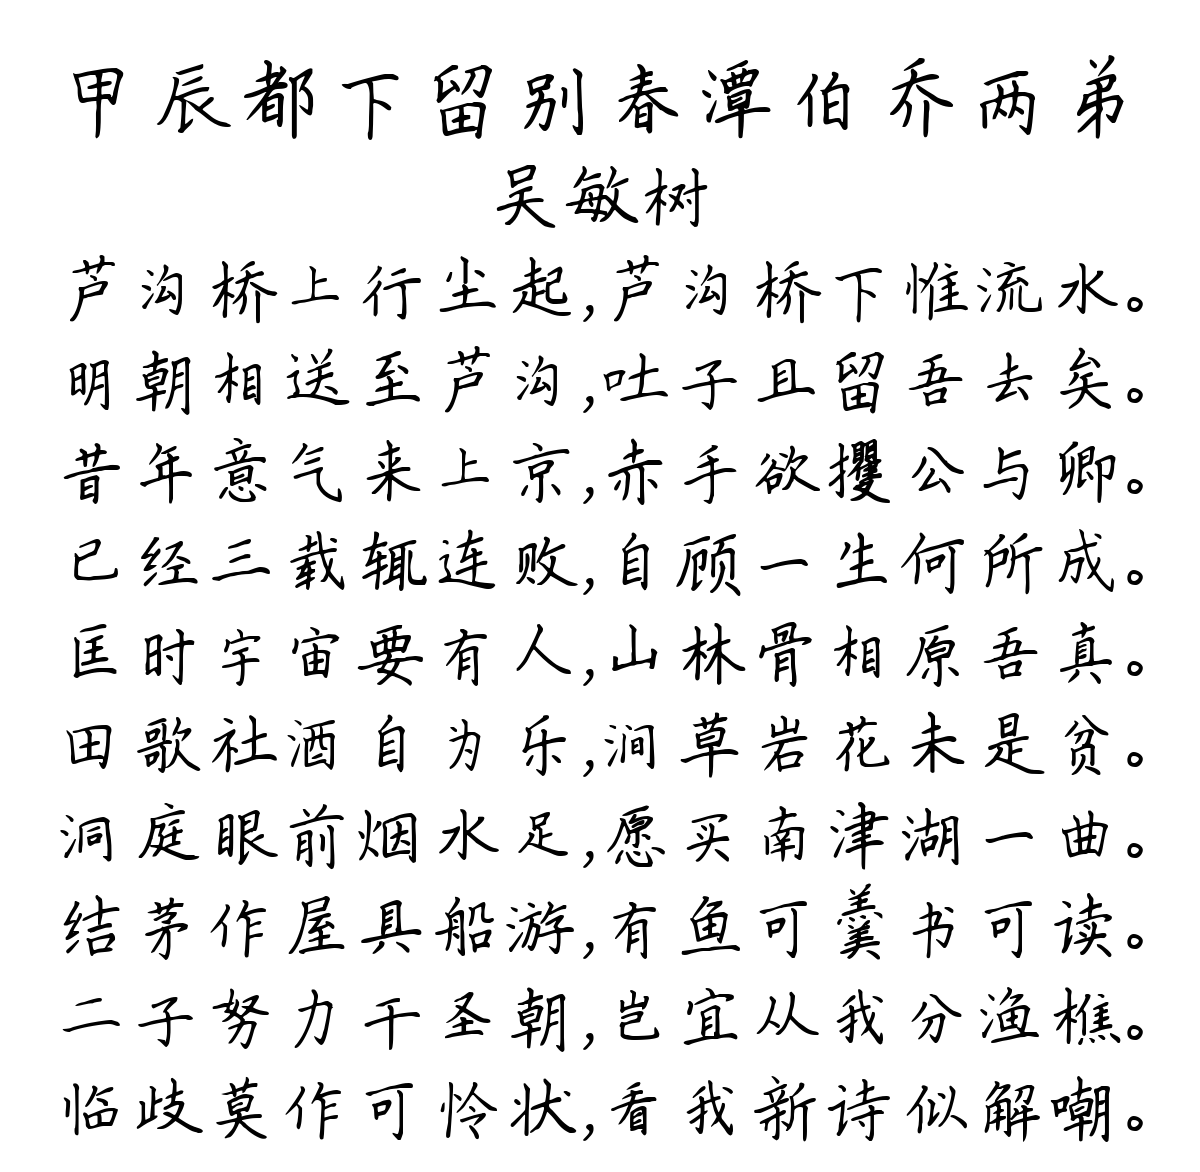 甲辰都下留别春潭伯乔两弟
吴敏树
芦沟桥上行尘起,芦沟桥下惟流水。
明朝相送至芦沟,吐子且留吾去矣。
昔年意气来上京,赤手欲攫公与卿。
已经三载辄连败,自顾一生何所成。
匡时宇宙要有人,山林骨相原吾真。
田歌社酒自为乐,涧草岩花未是贫。
洞庭眼前烟水足,愿买南津湖一曲。
结茅作屋具船游,有鱼可羹书可读。
二子努力干圣朝,岂宜从我分渔樵。
临歧莫作可怜状,看我新诗似解嘲。